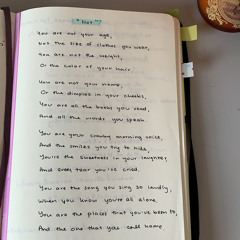 "Not"
You are not your age,
Not the size of clothes you wear,
You are not the weight,
Or the color of your hair.
You are not your name,
Or the dimples in your cheeks,
You are all the books you read,
And all the words you speak.
You are your croaky morning voice,
And the smiles you try to hide,
You're the sweetness in your laughter,
And every tear you've cried.
You are the song you sing so loudly,
When you know you're all alone,
You are the places that you've been to,
And the one that you call home.